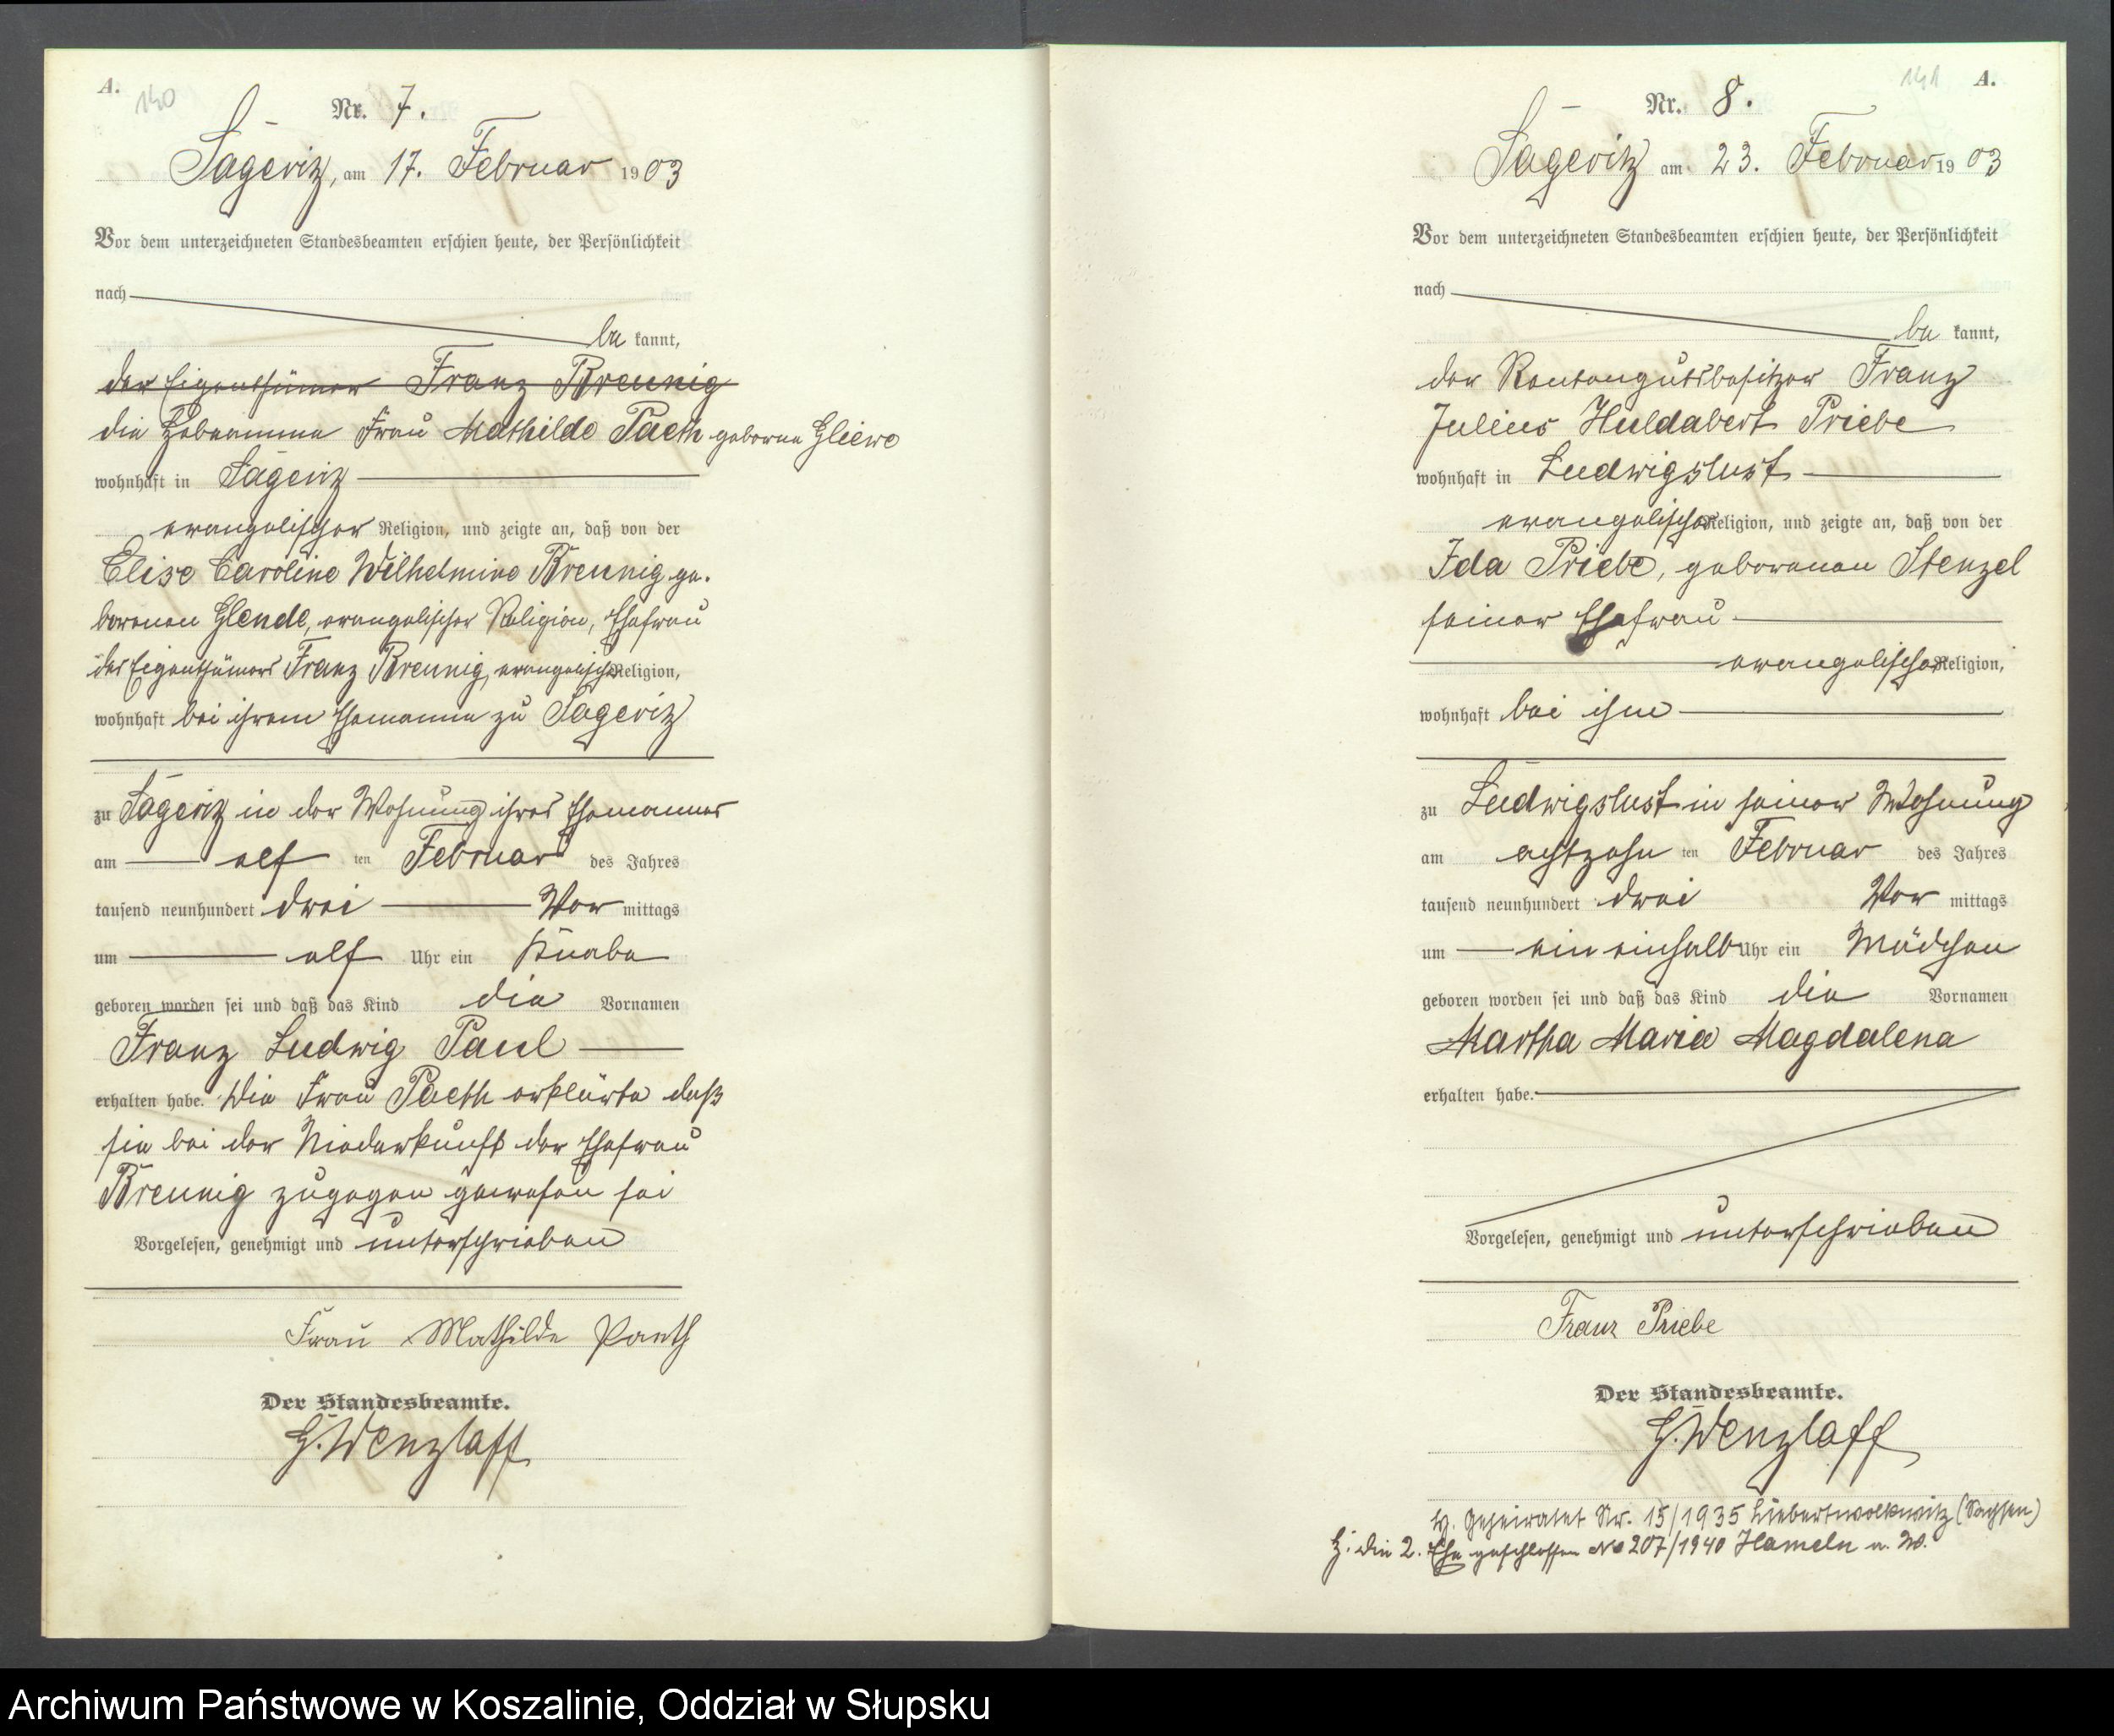 A.
140
Nr. 7.
Sageritz, am 17. Februar 1903
Vor dem unterzeichneten Standesbeamten erschien heute, der Persönlichkeit
nach
be kannt,
der Eigenthümer Franz Breunig
die Hebeamme Frau Mathilde Paeth geborne Gliewe
wohnhaft in Sageritz
evangelischer Religion, und zeigte an, daß von der
Elise Caroline Wilhelmine Breunig ge.
borenen Glende, evangelischer Religion, Ehefrau
des Eigenthümers Franz Breunig, evangelischer Religion,
wohnhaft bei ihrem Ehemanne zu Sageritz
zu Sageritz in der Wohnung ihres Ehemannes
am elf ten Februar des Jahres
tausend neunhundert drei Vor mittags
um elf Uhr ein Knabe
geboren worden sei und daß das Kind die Vornamen
Franz Ludwig Paul
erhalten habe. Die Frau Paeth erklärte daß
sie bei der Niederkunft der Ehefrau
Breunig zugegen gewesen sei
Vorgelesen, genehmigt und unterschrieben
Frau Mathilde Paeth
Der Standesbeamte.
G. Wenzlaff
141
A.
Nr. 8.
Sageritz am 23. Februar 1903
Vor dem unterzeichneten Standesbeamten erschien heute, der Persönlichkeit
nach
be kannt,
der Rentengutsbesitzer Franz
Julius Huldabert Priebe
wohnhaft in Ludwigslust
evangelischer Religion, und zeigte an, daß von der
Ida Priebe, geborenen Stenzel
seiner Ehefrau
evangelischer Religion,
wohnhaft bei ihm
zu Ludwigslust in seiner Wohnung
am achtzehn ten Februar des Jahres
tausend neunhundert drei Vor mittags
um ein einhalb Uhr ein Mädchen
geboren worden sei und daß das Kind die Vornamen
Martha Maria Magdalena
erhalten habe.
Vorgelesen, genehmigt und unterschrieben
Franz Priebe
Der Standesbeamte.
G. Wenzlaff
Geheiratet Nr. 15/1935 Liebertwolkwitz (Sachsen)
die 2. Ehe geschlossen No 207/1940 Hameln a. W.
Archiwum Państwowe w Koszalinie, Oddział w Słupsku